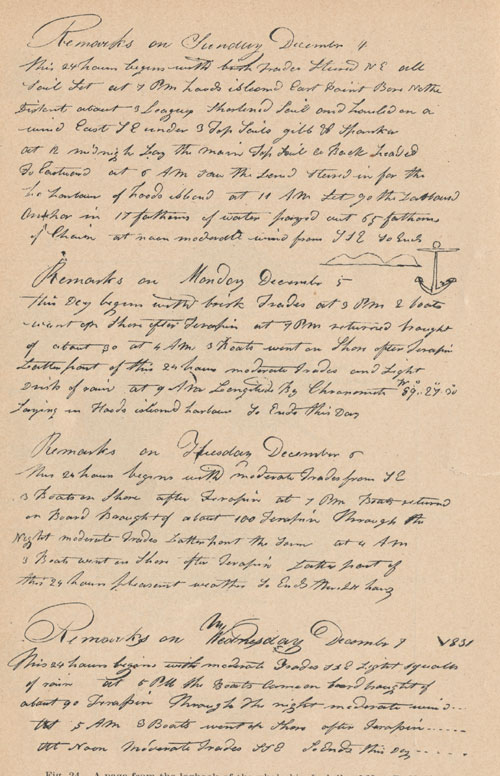 Remarks on Sunday December 4
This 24 hours begins with brisk Trades Steerd NE all
Sail Set at 7 PM hoods island East Point Bore N
Distent about 3 Leagues Shortened Sail and hauled on a
wind East SE under 3 Top Sails gibb & Spanker
at 12 midnigh Lay the main Top Sail to Back headed
To Eastward at 6 AM saw the Land Steerd in for the
the harbour of hoods island at 11 AM Let go the Larboard
Anchor in 17 fathoms of water payed out 65 fathoms
of Chain at noon moderate wind from SSE So Ends
Remarks on Monday December 5
This Day begins with brisk Trades at 3 PM 2 boats
went on Shore after Terapin at 7 PM returned braught
of about 30 at 4 AM 3 Boats went on Shore after Terapin
Latter part of this 24 hours moderate Trades and Light
of rain at 9 AM Longitude By Chronometer W 89..29..30
Laying in Hoods island harbour So Ends this Day
Remarks on Tuesday December 6
This 24 hours begins with moderate Trades from SE
3 Boats on Shore after Terapin at 7 PM Boats returned
on Board Braught of about 100 Terapin Through the
Night moderate Trades Latter part the Same at 4 AM
3 Boats went on Shore after Terapin Latter part of
this 24 hours pleasent weather So Ends these 24 hours
Remarks on Wednesday December 7 1831
This 24 hours begins with moderate Trades SSE Light squales
of rain at 5 PM the Boats Came on board braught of
about 90 Terrapin Through the night moderate wind...
at 5 AM 3 Boats went on Shore after Terapin......
at Noon Moderate Trades SSE So Ends this Day......
Fig. 24. A page from the logbook of the